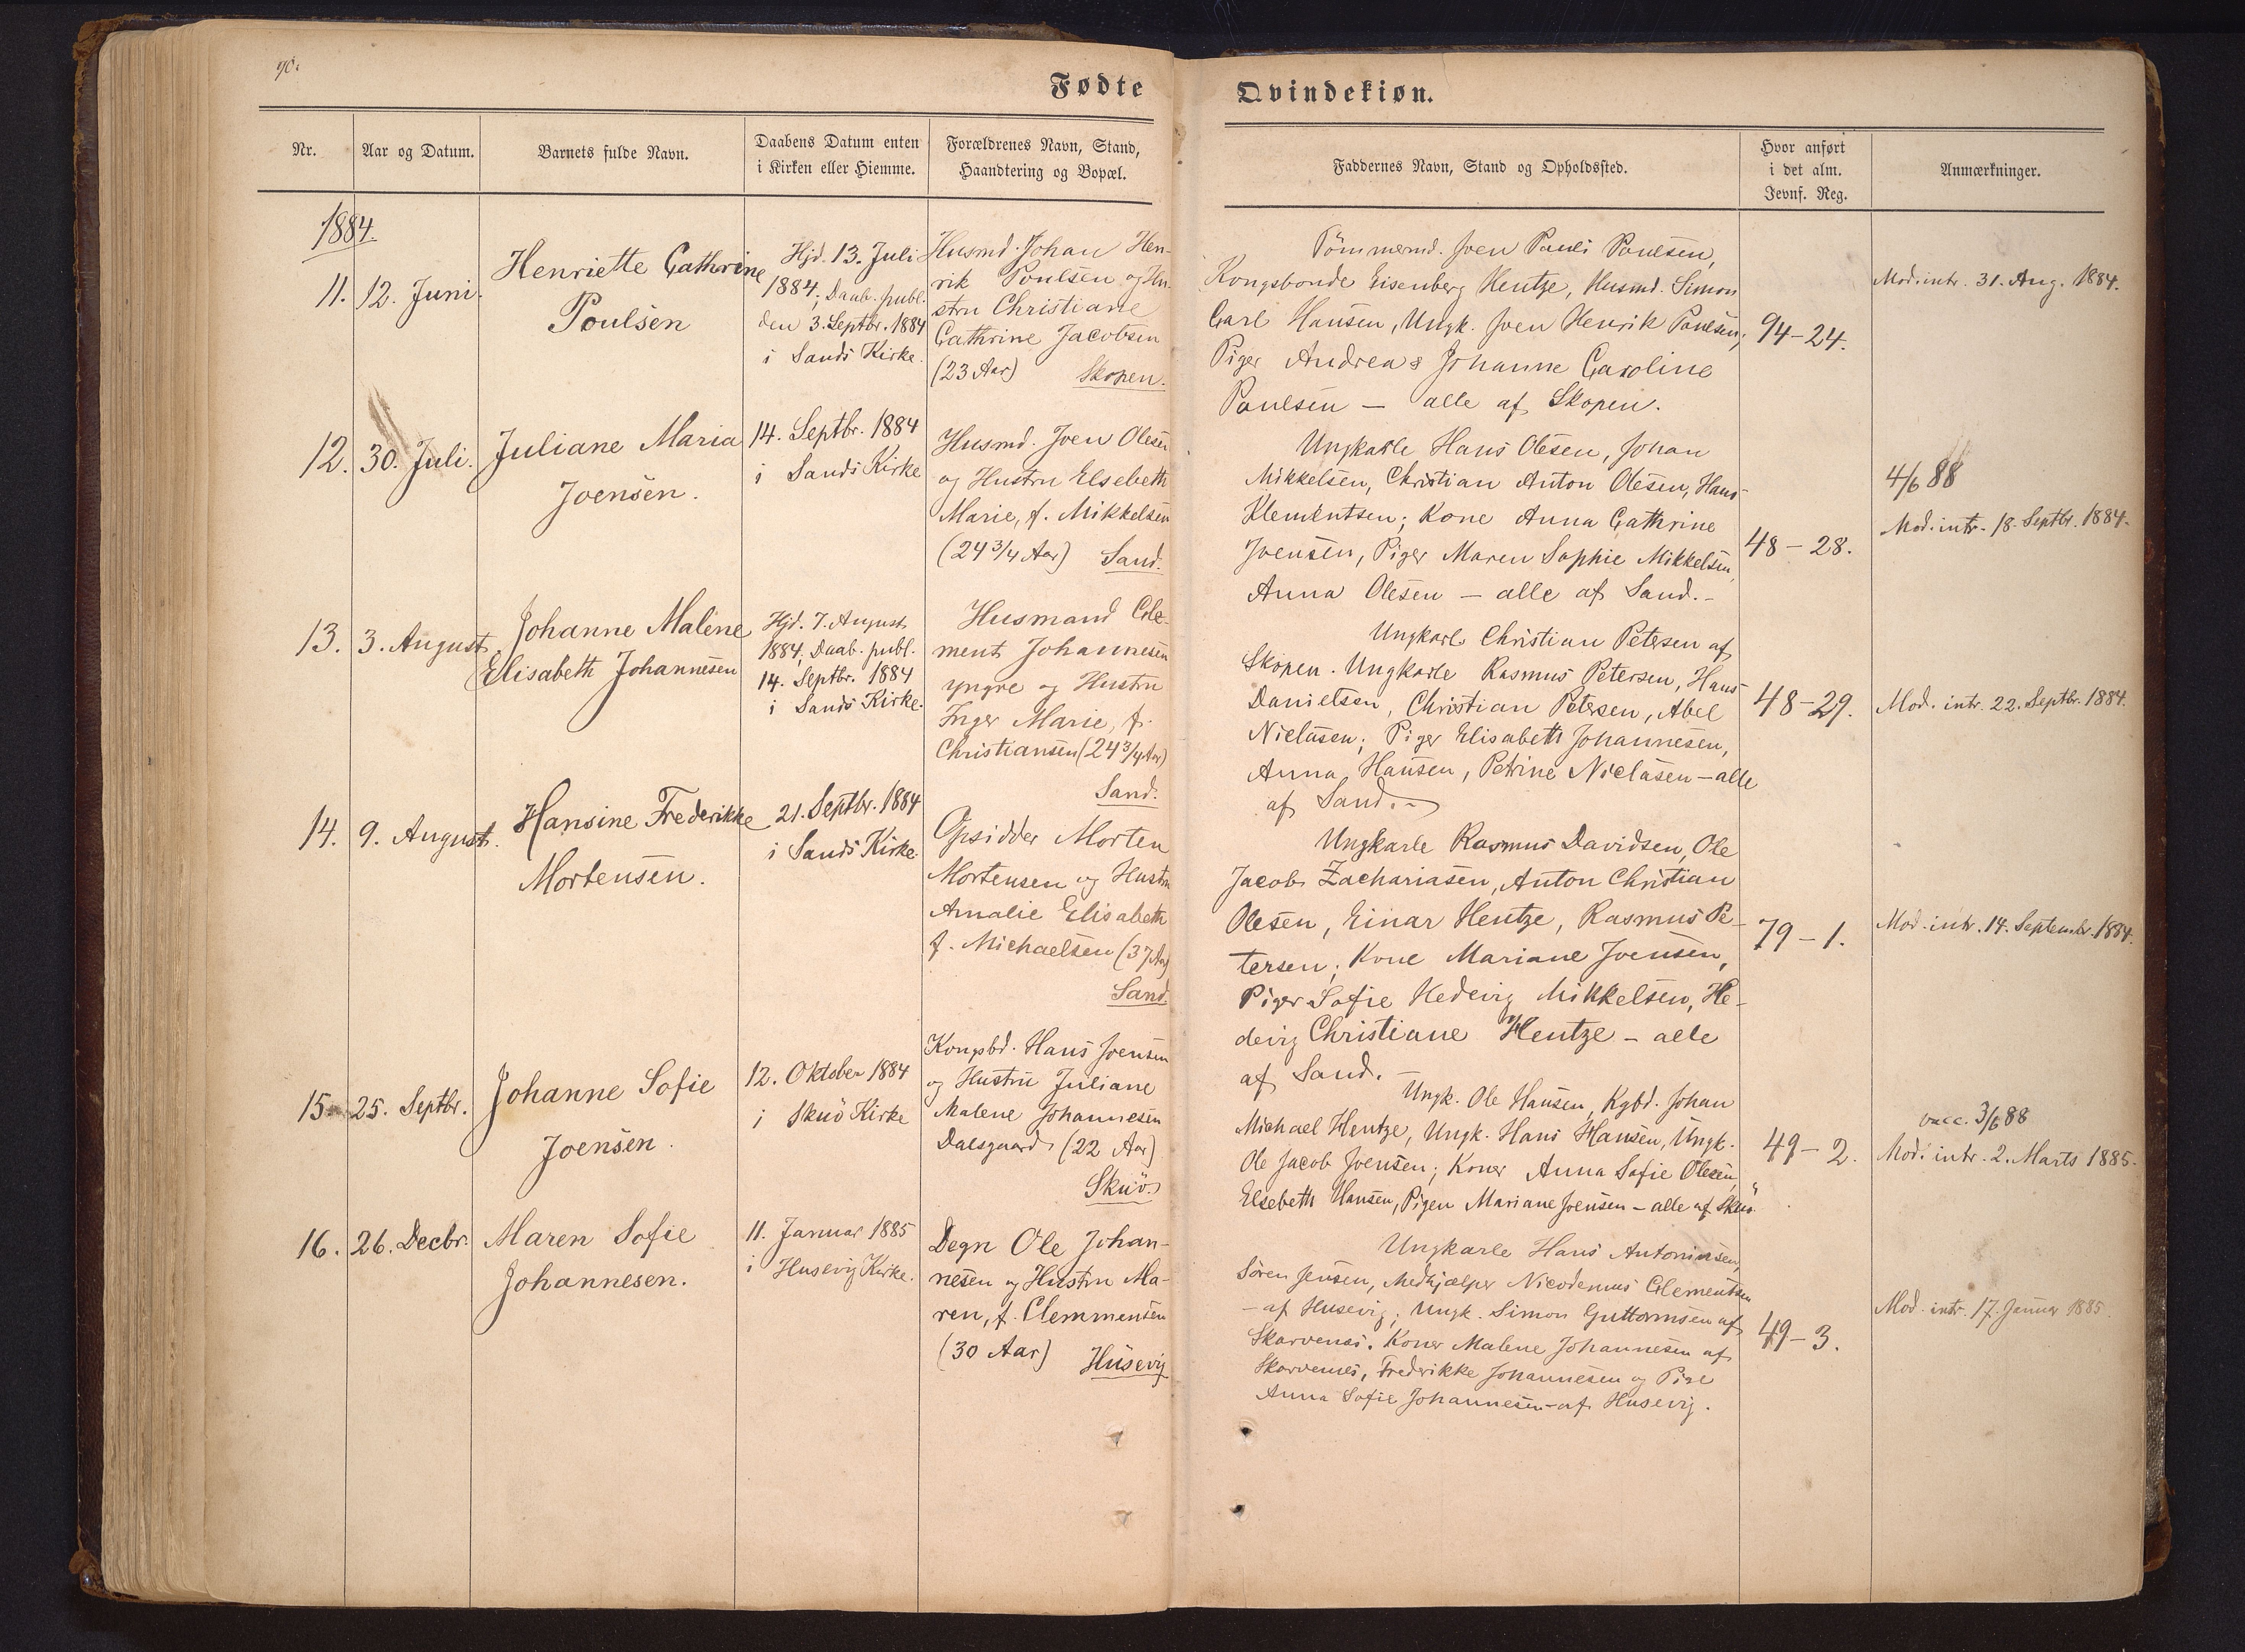 90.
Fødte
Qvindekiøn.
Nr.
Aar og Datum.
Barnets fulde Navn.
Daabens Datum enten
i Kirken eller Hiemme.
Forældrenes Navn, Stand,
Haandtering og Bopæl.
Faddernes Navn, Stand og Opholdssted.
Hvor anført
i det alm.
Jevnf. Reg.
Anmærkninger.
1884.
11.
12. Juni.
Henriette Cathrine
Poulsen
Hjd. 13. Juli
1884; Daab. publ.
den 3. Septbr. 1884
i Sands Kirke.
Husmd. Johan Hen-
rik Poulsen og Hu-
stru Christiane
Cathrine Jacobsen
(23 Aar) Skopen.
Tömmermd. Joen Pauli Poulsen,
Kongsbonde Eisenberg Hentze, Husmd. Simon
Carl Hansen, Ungk. Joen Henrik Poulsen;
Piger Andrea & Johanne Caroline
Poulsen — alle af Skopen.
94-24.
Mod. intr. 31. Aug. 1884.
12.
30. Juli.
Juliane Maria
Joensen.
14. Septbr. 1884
i Sands Kirke
Husmd. Joen Olesen
og Hustru Elsebeth
Marie, f. Mikkelsen
(24 3/4 Aar) Sand.
Ungkarle Hans Olesen, Johan
Mikkelsen, Christian Anton Olesen, Hans
Klementsen; Kone Anna Cathrine
Joensen, Piger Maren Sophie Mikkelsen,
Anna Olesen — alle af Sand. -
48-28.
4/6 88
Mod. intr. 18. Septbr. 1884.
13.
3. August.
Johanne Malene
Elisabeth Johannesen
Hjd. 7. August
1884; Daab. publ.
14. Septbr. 1884
i Sands Kirke.
Husmand Cle-
ment Johannesen
yngre og Hustru
Inger Marie, f.
Christiansen (24 3/4 Aar)
Sand.
Ungkarl Christian Petersen af
Skopen. Ungkarle Rasmus Petersen, Hans
Danielsen, Christian Petersen, Abel
Niclasen; Piger Elisabeth Johannesen,
Anna Hansen, Petrine Niclasen - alle
af Sand. -
48-29.
Mod. intr. 22. Septbr. 1884.
14.
9. August.
Hansine Frederikke
Mortensen.
21. Septbr. 1884
i Sands Kirke.
Opsidder Morten
Mortensen og Hustru
Amalie Elisabeth
f. Michaelsen (37 Aar)
Sand.
Ungkarle Rasmus Davidsen, Ole
Jacob Zachariasen, Anton Christian
Olesen, Einar Hentze, Rasmus Pe-
tersen; Kone Mariane Joensen,
Piger Sofie Hedevig Mikkelsen, He-
devig Christiane Hentze - alle
af Sand. -
79-1.
Mod. intr. 14. Septembr. 1884.
15.
25. Septbr.
Johanne Sofie
Joensen.
12. Oktober 1884
i Skuö Kirke
Kongsbd. Hans Joensen
og Hustru Juliane
Malene Johannesen
Dalsgaard (22 Aar)
Skuö.
Ungk. Ole Hansen, Kgbd. Johan
Michael Hentze, Ungk. Hans Hansen, Ungk.
Ole Jacob Joensen; Koner Anna Sofie Olesen,
Elsebeth Hansen, Pigen Mariane Joensen - alle af Skuö.
49-2.
vacc. 3/6 88
Mod. intr. 2. Marts 1885.
16.
26. Decbr.
Maren Sofie
Johannesen.
11. Januar 1885
i Husevig Kirke.
Degn Ole Johan-
nesen og Hustru Ma-
ren, f. Clemmensen
(30 Aar) Husevig
Ungkarle Hans Antoniesen,
Sören Jensen, Medhjælper Nicodemus Clementsen
- af Husevig; Ungk. Simon Guttormsen af
Skarvenes. Koner Malene Johannesen af
Skarvenes, Frederikke Johannesen og Pige
Anna Sofie Johannesen - af Husevig.
49-3.
Mod. intr. 17. Januar 1885.